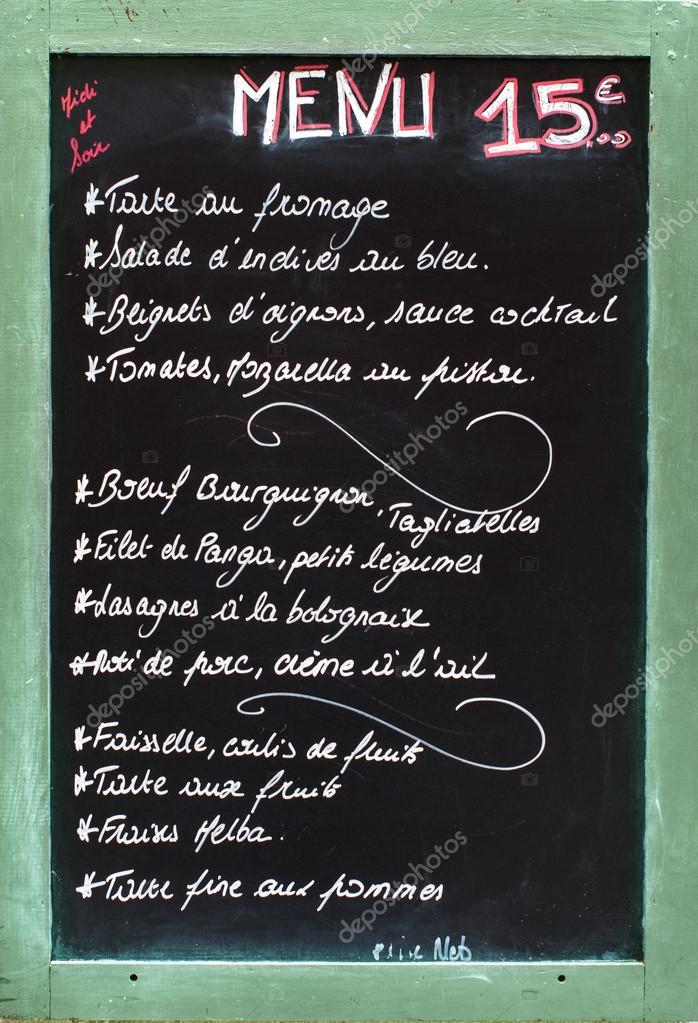 Midi et Soir
MENU 15€
*Tarte au fromage
*Salade d'endives au bleu.
*Beignets d'oignons, sauce cocktail
*Tomates, Mozarella au pistou.
*Boeuf Bourguignon, Tagliatelles
*Filet de Panga, petits légumes
*Lasagnes à la bolognaise
*Roti de porc, crème à l'ail
*Faisselle, coulis de fruits
*Tarte aux fruits
*Fraises Melba.
*Tarte fine aux pommes
prix Nets
depositphotos